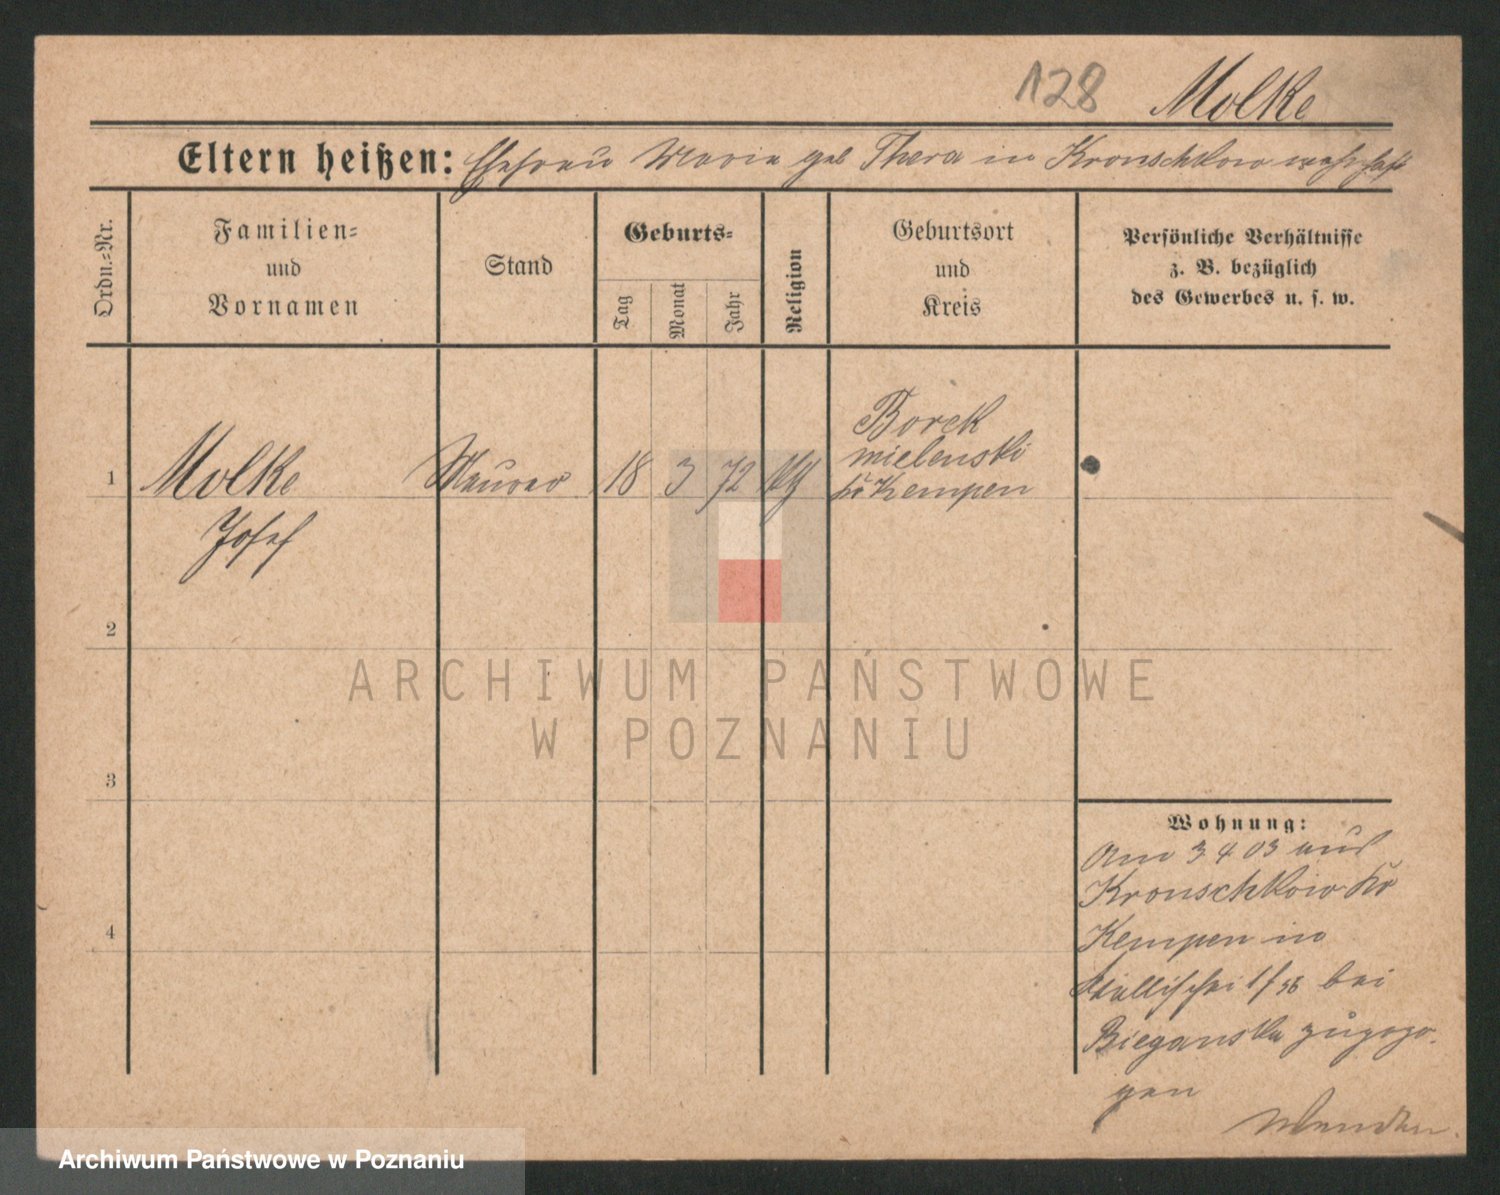 128 Molke
Eltern heißen: Ehefrau Marie geb Thera in Kronschkow wohnhaft
Ordn.-Nr.
Familien-
und
Vornamen
Stand
Geburts-
Tag
Monat
Jahr
Religion
Geburtsort
und
Kreis
Persönliche Verhältnisse
z. B. bezüglich
des Gewerbes u. s. w.
1 Molke Maurer 18 3 72
Josef
Borek
mielenski
Kr Kempen
2
3
4
Wohnung:
Am 3 4 03 aus
Kronschkow Kr
Kempen in
bei
Bieganska zugezo-
gen
Wenden
ARCHIWUM PAŃSTWOWE
W POZNANIU
Archiwum Państwowe w Poznaniu